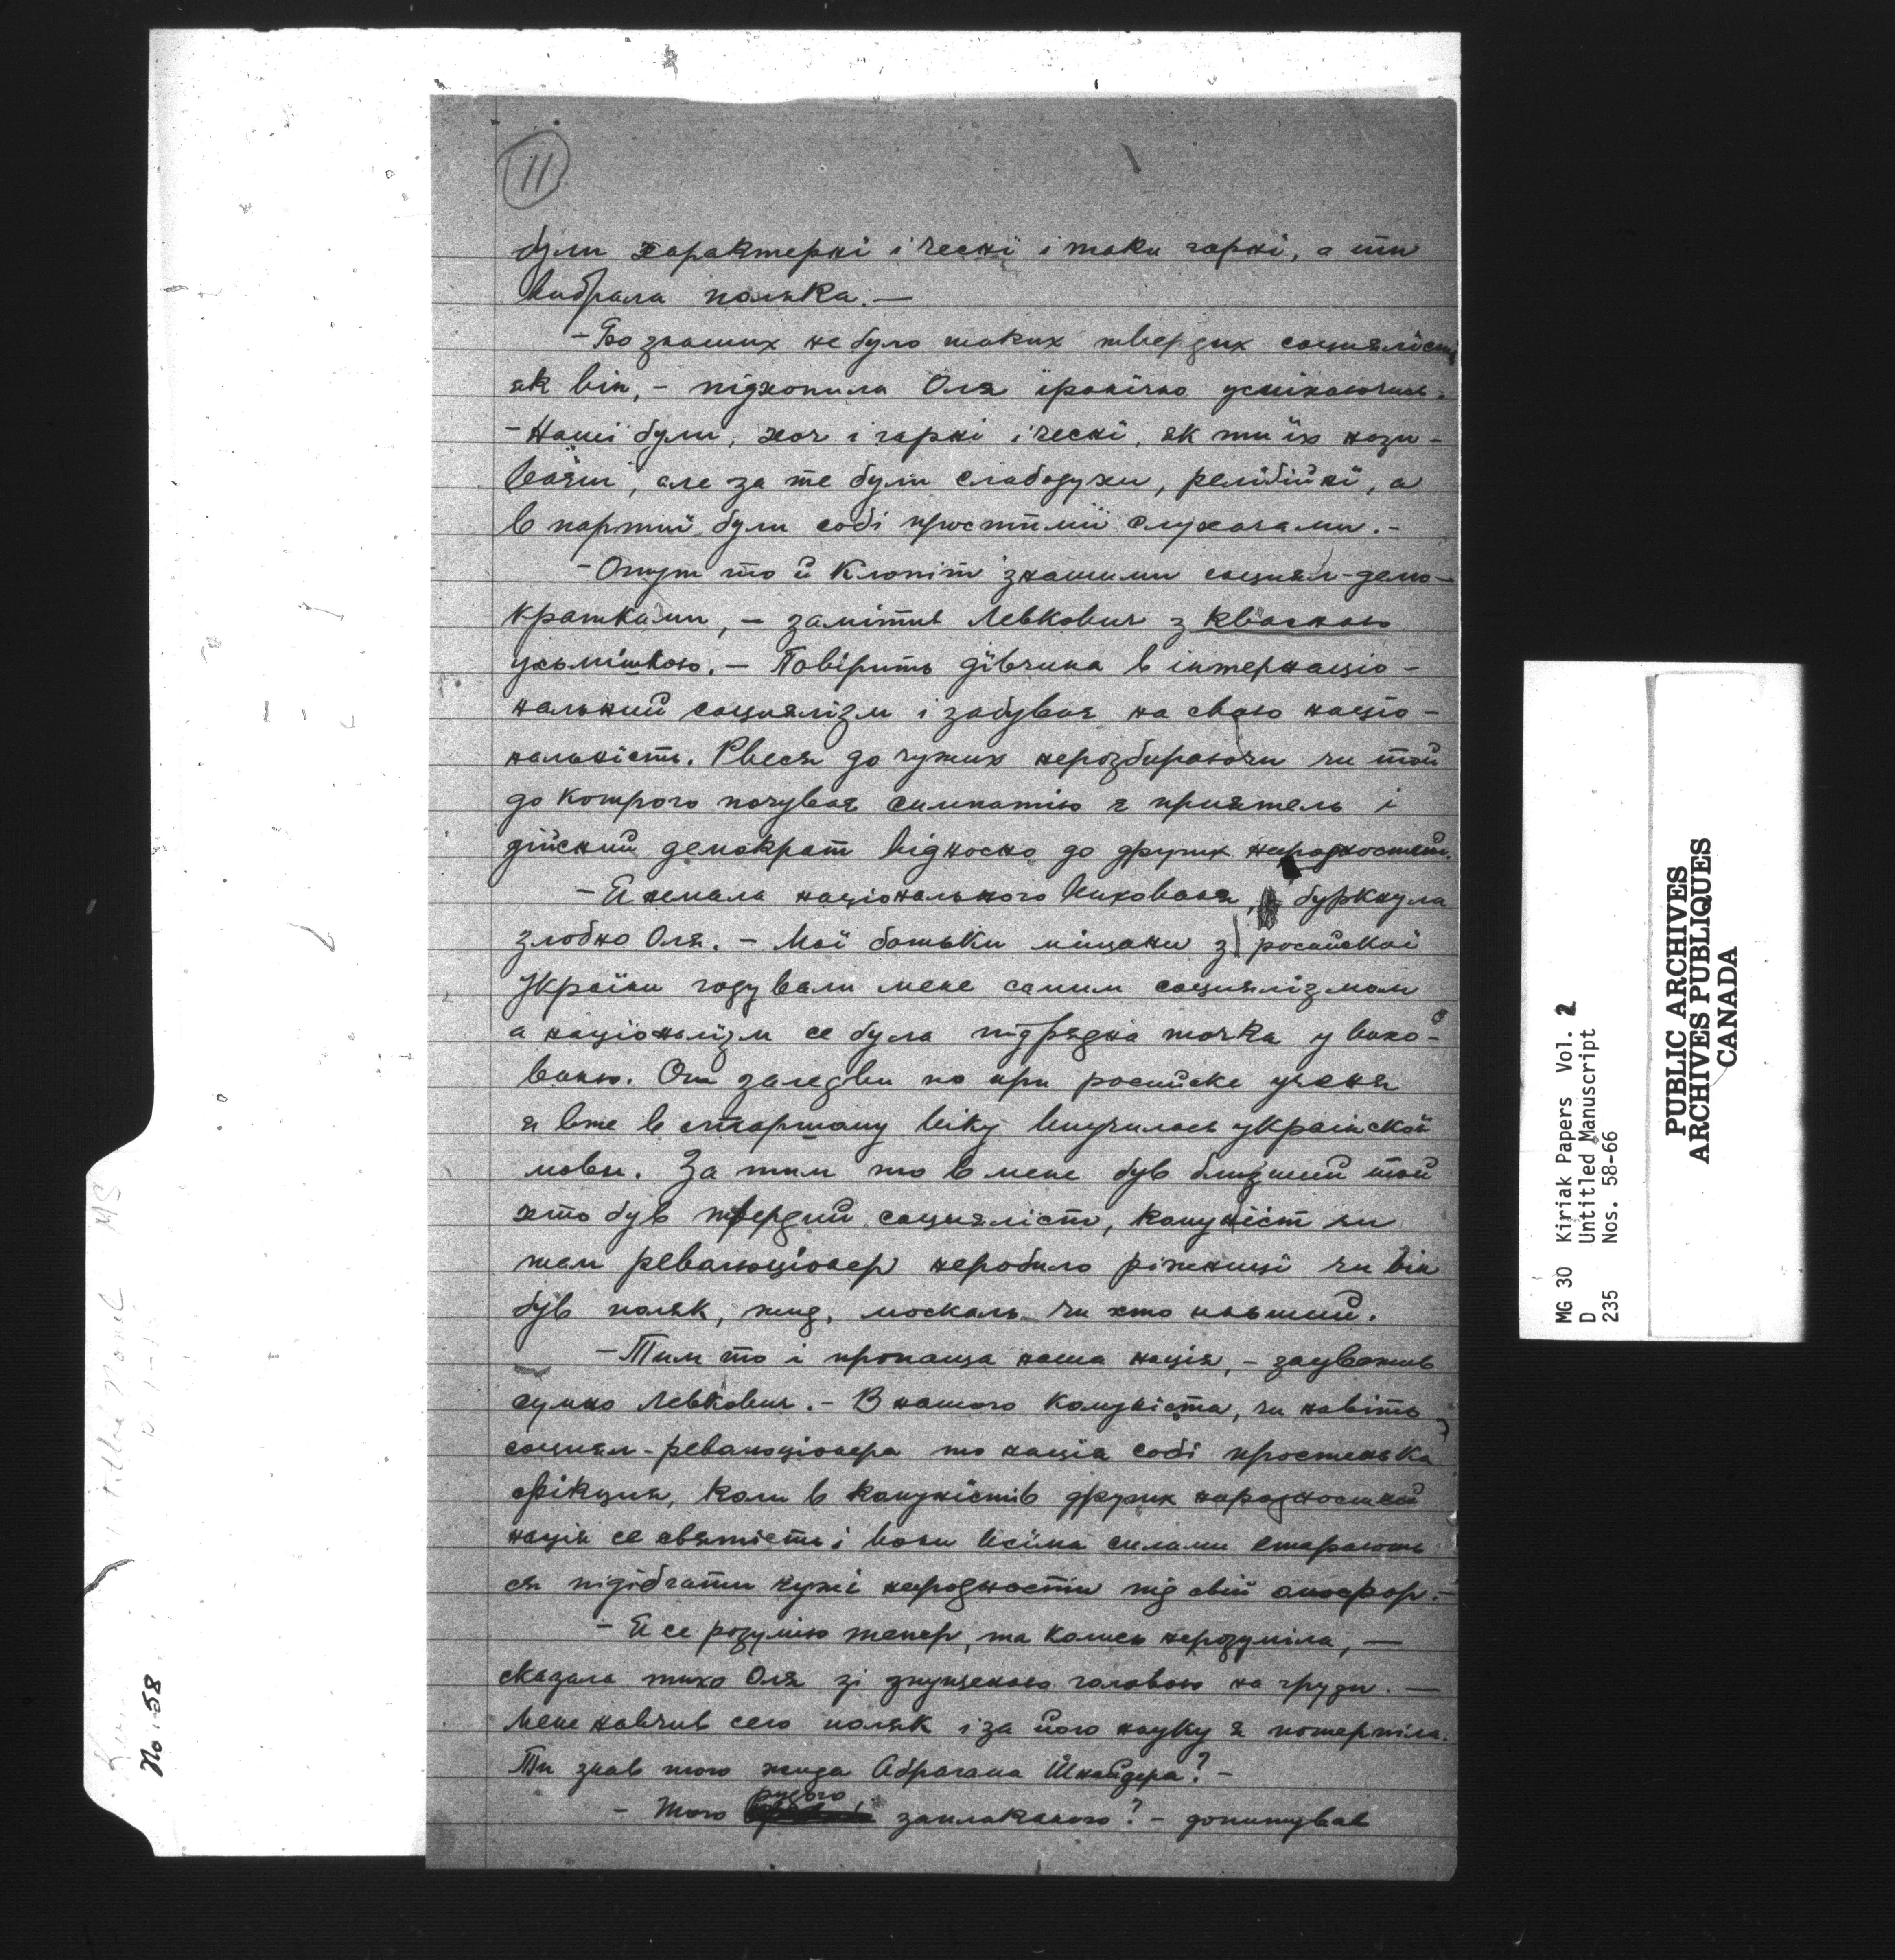 11
були характерні і чесні і таки гарні, а ти
вибрала поляка. —
— Бо знаших не було таких твердих социялістів
як він, — підхопила Оля іронічно усміхаючись.
— Наші були, хоч і гарні і чесні, як ти їх нази-
ваєш, але за те були слабодухи, релігійні, а
в партиї були собі простими слухачами. —
— Отут то й клопіт знашими социял-демо-
кратками, — замітив Левкович з квасною
усьмішкою. — Повірить дівчина в інтернаціо-
нальний социялізм і забуває на свою націо-
нальність. Рвеся до чужих нерозбираючи чи той
до котрого почуває симпатію є приятель і
дійсний демократ відносно до других народностей.
— Я немала національного виховання, буркнула
злобно Оля. — Мої батьки міщани з росийскої
України годували мене самим социялізмом
а націоналізм се була підрядна точка у вихо-
ваню. От заледви по при росийске учення
я вже в старшому віку вишучилась української
мови. За тим то в мене був близший той
хто був твердий социяліст, комуніст чи
там революціонер неробило ріжниці чи він
був поляк, жид, москаль чи хто инший.
— Тим то і пропаща наша нація, — зауважив
сумно Левкович. — В нашого комуніста, чи навіть
социял-революціонера то нація собі простенька
фікция, коли в комуністів других народностей
нація се святість і вони всіма силами старають
ся підібгати чужі народности під свій
— Я се розумію тепер, та колись нерозуміла, —
сказала тихо Оля зі знущеною головою на груди. —
Мене навчив сего поляк і за його науку я потерпіла.
Ти знав того жида Абрагама Шнайдера? —
— Того рудого заплаканого? — допитував
No. 58
MG 30 Kiriak Papers Vol. 2
D Untitled Manuscript
235 Nos. 58-66
PUBLIC ARCHIVES
ARCHIVES PUBLIQUES
CANADA